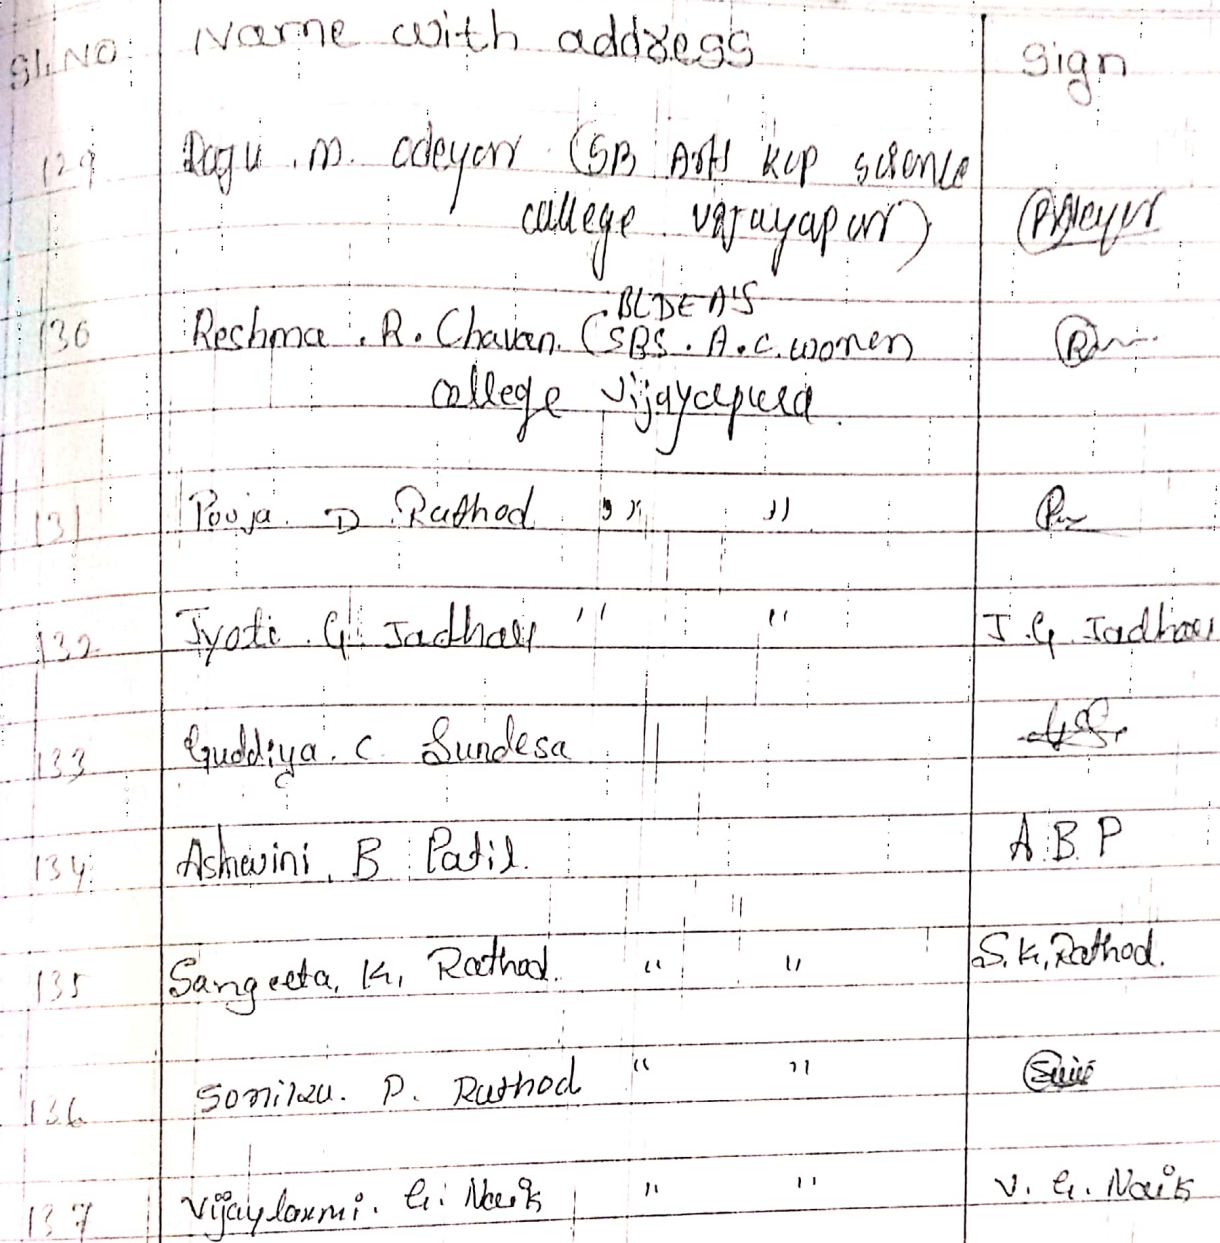 Sl.NO. Name with address Sign
129 Ragu . M. Odeyar (SB Arts kcp science
college vijayapur)
BLDEA'S
130 Reshma . R. Chavan. (SBS. A.c. women
college vijayapura.
131 Pooja D Rathod " "
132 Jyoti . G. Jadhav " " J.G. Jadhav
133 Guddiya. C. Sundesa ||
134 Ashwini. B Patil. A.B.P
135 Sangeeta. K. Rathod. " " S.K. Rathod.
136 P. Rathod " "
137 Vijaylaxmi. G. Naik " " V. G. Naik